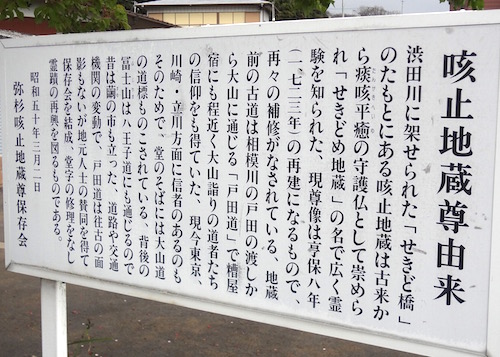 咳止地蔵尊由来
渋田川に架せられた「せきど橋」
のたもとにある咳止地蔵は古来か
ら痰咳平癒の守護仏として崇めら
れ「せきどめ地蔵」の名で広く霊
験を知られた、現尊像は享保八年
(一七二三年)の再建になるもので、
再々の補修がなされている、地蔵
前の古道は相模川の戸田の渡しか
ら大山に通じる「戸田道」で糟屋
宿にも程近く大山詣りの道者たち
の信仰をも得ていた、現今東京、
川崎・立川方面に信者のあるのも
そのためで、堂のそばには大山道
の道標ものこされている、背後の
冨士山は八王子道にも通じるので
昔は繭の市も立った、道路や交通
機関の変動で、戸田道は往古の面
影もないが地元人士の賛同を得て
保存会を結成、堂宇の修理をなし
霊蹟の再興を図るものである。
昭和五十年三月二日
弥杉咳止地蔵尊保存会